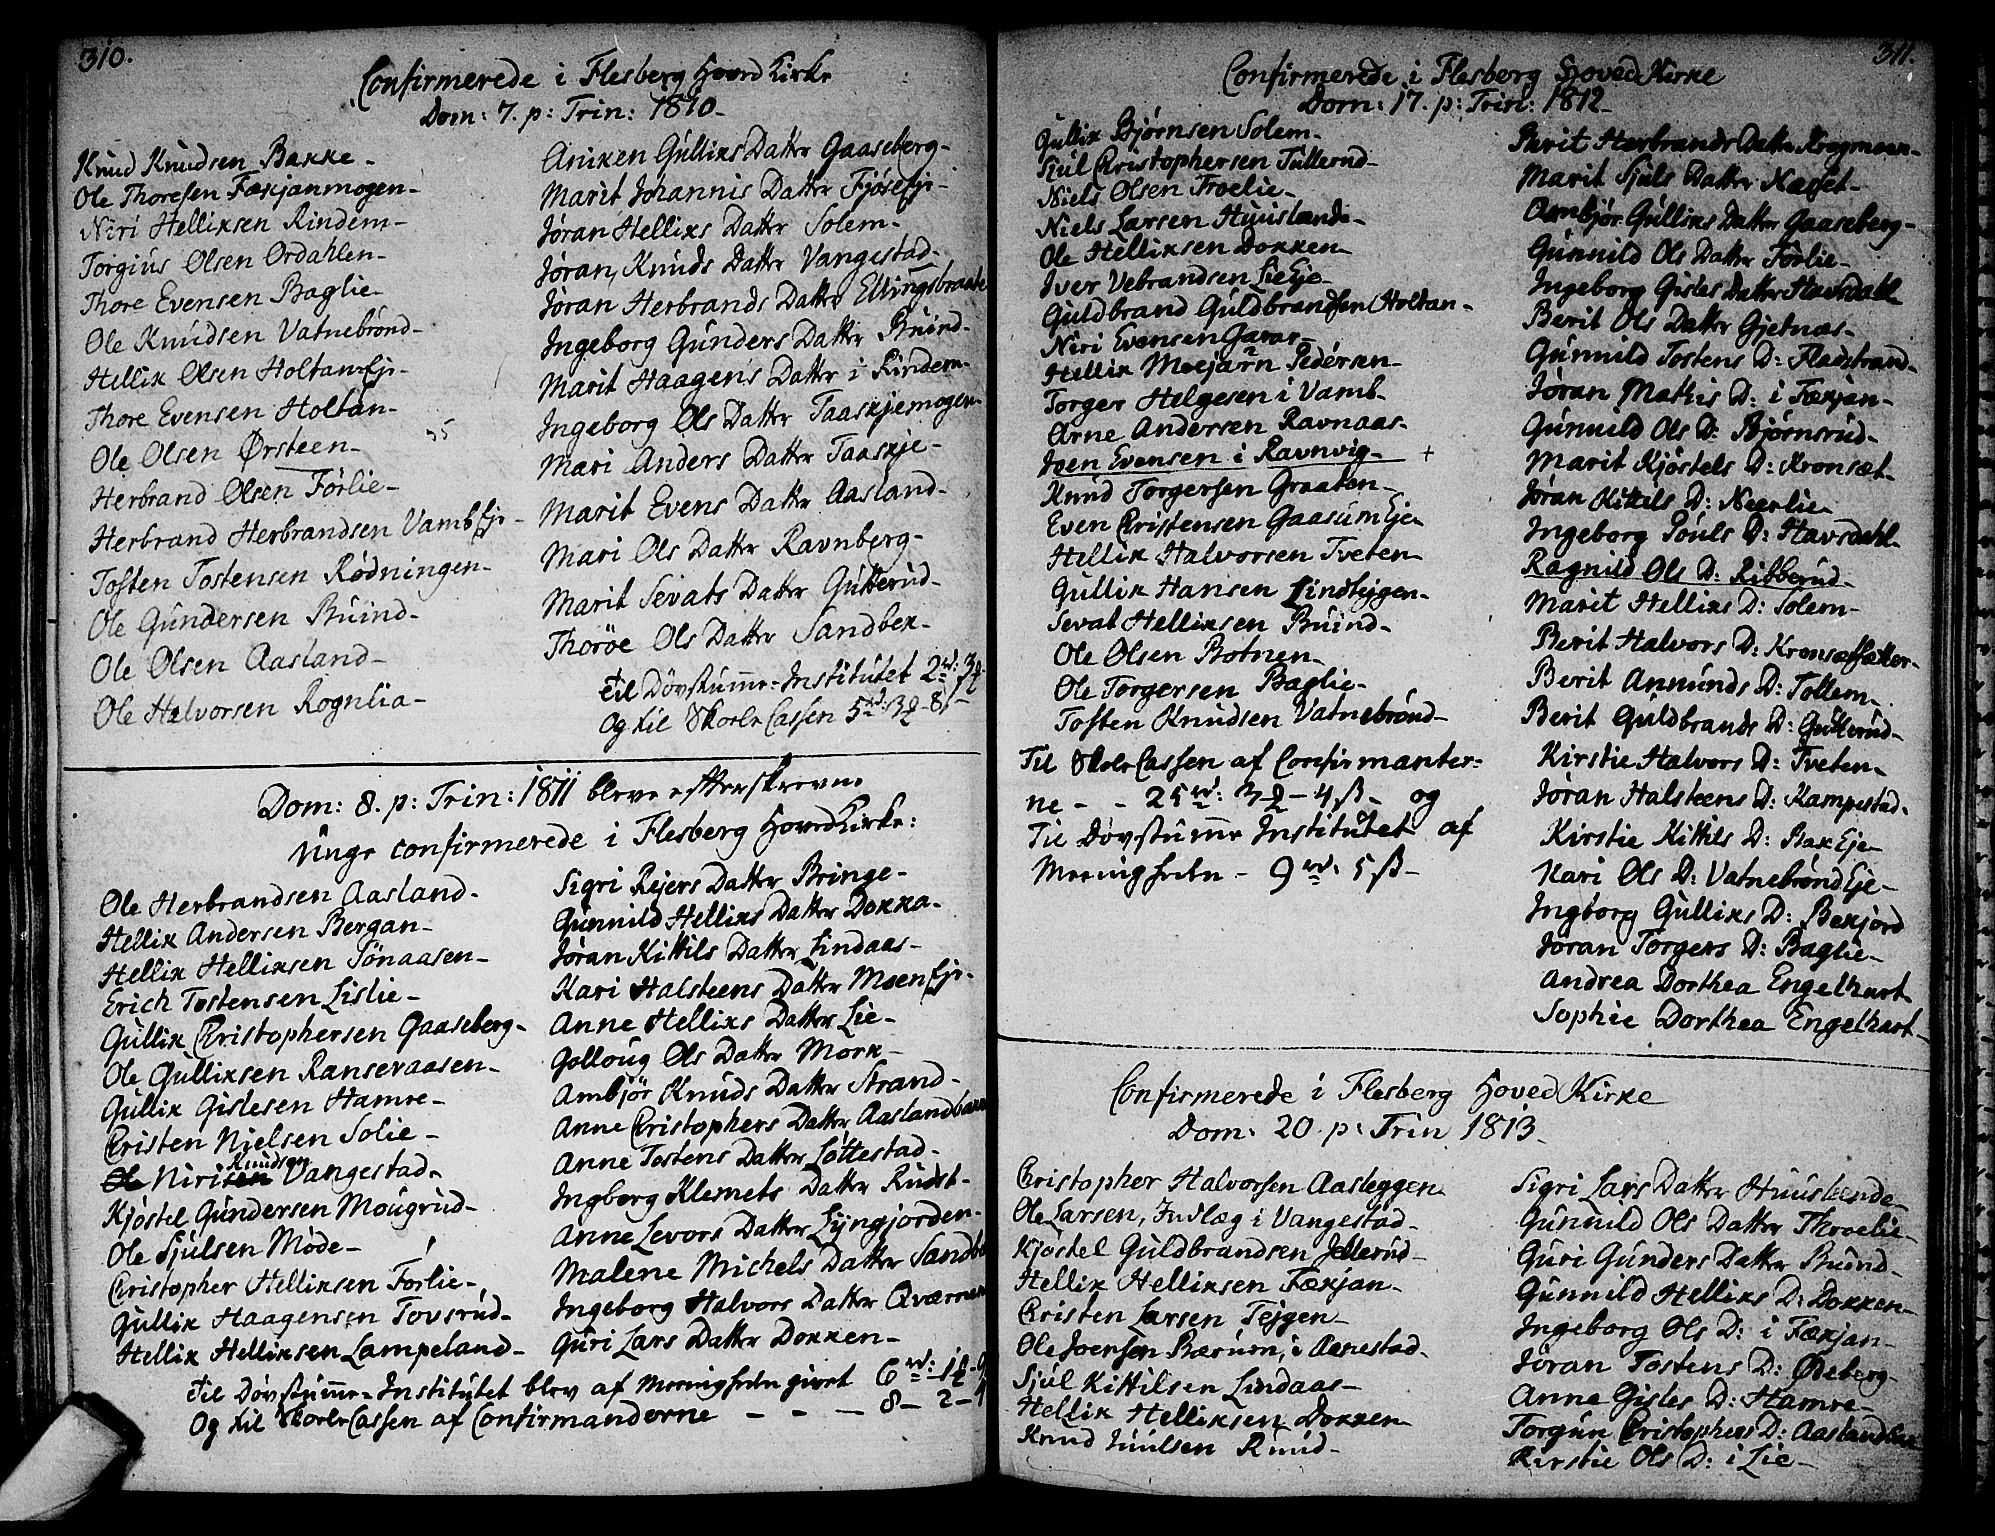 310.
Confirmerede i Flesberg Hoved Kirke
Dom: 7. p: Trin: 1810.
Knud Knudsen Bakke.
Ole Thoresen Fækjanmogen
Niri Helliksen Rindem
Torgius Olsen Ordahlen
Thore Evensen Baglie
Ole Knudsen Vatnebrønd
Hellik Olsen Holtan Eje
Thore Evensen Holtan
Ole Olsen Ørsteen
Herbrand Olsen Førlie
Herbrand Herbrandsen Vamb Eje
Tosten Tostensen Rødningen
Ole Gundersen Buind
Ole Olsen Aasland
Ole Halvorsen Rognlia
Aniken Gulliks Datter Gaaseberg
Marit Johannis Datter Fjøse Eje
Jøran Helliks Datter Solem
Jøran Knuds Datter Vangestad
Jøran Herbrands Datter Ellingsbraate
Ingeborg Gunders Datter Buind
Marit Haagens Datter i Rindem
Ingeborg Ols Datter Taaskjemogen
Mari Anders Datter Taaskje
Marit Evens Datter Aasland
Mari Ols Datter Ravnberg
Marit Sevats Datter Gutterud
Thorøe Ols Datter Sandbek
Til Døvstumme-Institutet 2 rd: 3
Og til Skole Cassen 5 rd: 3 - 8
Dom: 8. p: Trin: 1811 bleve efterskrevne
Unge confirmerede i Flesberg Hoved Kirke:
Ole Herbrandsen Aasland
Hellik Andersen Bergan
Hellik Helliksen Tønaasen
Erich Tostensen Lislie
Gullik Christophersen Gaaseberg
Ole Gulliksen Ranseraasen
Gullik Gislesen Hamre
Christen Nielsen Solie
Ole Nirisen Knudsen Vangestad
Kjøstel Gundersen Mougrud
Ole Sjulsen Møde
Christopher Helliksen Førlie
Gullik Haagensen Tovsrud
Hellik Helliksen Lampeland
Sigri Rejers Datter Bringe
Gunnild Helliks Datter Dokka
Jøran Kittils Datter Lindaas
Kari Halsteens Datter Moen Eje
Anne Helliks Datter Lie
Golloug Ols Datter Mork
Ambjør Knuds Datter Strand
Anne Christophers Datter Aasland
Anne Tostens Datter Løttestad
Ingberg Klemets Datter Rudst
Anne Levors Datter Lyngjorden
Malene Michels Datter Sandb
Ingeborg Halvors Datter Qværnen
Guri Lars Datter Dokken
Til Døvstumme-Institutet blev af Meenigheden givet 6 rd: 1
Og til Skole Cassen af Confirmanderne - - - 8 - 2 - 1
311.
Confirmerede i Flesberg Hoved Kirke
Dom: 17. p: Trin: 1812
Gullik Bjørnsen Solem
Sjul Christophersen Tullerud
Niels Olsen Froelie
Niels Larsen Huuslænde
Ole Helliksen Dokken
Iver Vebrandsen Lie Eje
Guldbrand Guldbrandsen Holtan
Niri Evensen Gavar
Hellik Moejarn Pedersen
Torger Helgesen i Vamb
Arne Andersen Ravnaas
Joen Evensen i Ravnvig +
Knud Torgersen Graaten
Even Christensen Gaasum Eje
Hellik Halvorsen Tveten
Gullik Hansen Lindtejgen
Sevat Helliksen Buind
Ole Olsen Botnen
Ole Torgersen Baglie
Tosten Knudsen Vatnebrønd
Til Skole Cassen af Confirmanter=
ne - - 25 rd: 3 - 4 ß og
Til Døvstumme Institutet af
Meenigheden - 9 rd: 5 ß
Berit Herbrands Datter Kragmoen
Marit Sjuls Datter Næsset
Ambjør Gulliks Datter Gaaseberg
Gunnild Ols Datter Førlie
Ingeborg Gisles Datter Havsdahl
Berit Ols Datter Gjetnæs
Gunnild Tostens D: Fladstrand
Jøran Mathis D: i Fækjan
Gunnild Ols D: Bjørnsrud
Marit Kjøstels D: Kronsæt
Jøran Kittils D: Neerlie
Ingeborg Pouls D: Havsdahl
Ragnild Ols D: Ribberud
Marit Helliks D: Solem
Berit Halvors D: Kronsætsætter
Berit Anmunds D: Tollem
Berit Guldbrands D: Gutterud
Kirstie Halvors D: Tveten
Jøran Halsteens D: Kampestad
Kirstie Kittils D: Bak Eje
Kari Ols D: Vatnebrønd Eje
Ingborg Gulliks D: Bekjord
Jøran Torgers D: Baglie
Andrea Dorthea Engelhart
Sophie Dorthea Engelhart
Confirmerede i Flesberg Hoved Kirke
Dom: 20. p: Trin 1813
Christopher Halvorsen Aasleggen
Ole Larsen, Indlæg i Vangestad
Kjøstel Guldbrandsen Jellerud
Hellik Helliksen Fækjan
Christen Larsen Tejgen
Ole Joensen Bærum, i Aanestad
Sjul Kittilsen Lindaas
Hellik Helliksen Dokken
Knud Juulsen Ruud
Sigri Lars Datter Huuslænde
Gunnild Ols Datter Throelie
Guri Gunders Datter Buind
Gunnild Helliks D: Dokken
Ingeborg Ols D: i Fækjan
Jøran Tostens D: Ødeberg
Anne Gisles D: Hamre
Torgun Christophers D: Aasland
Kirstie Ols D: i Lie